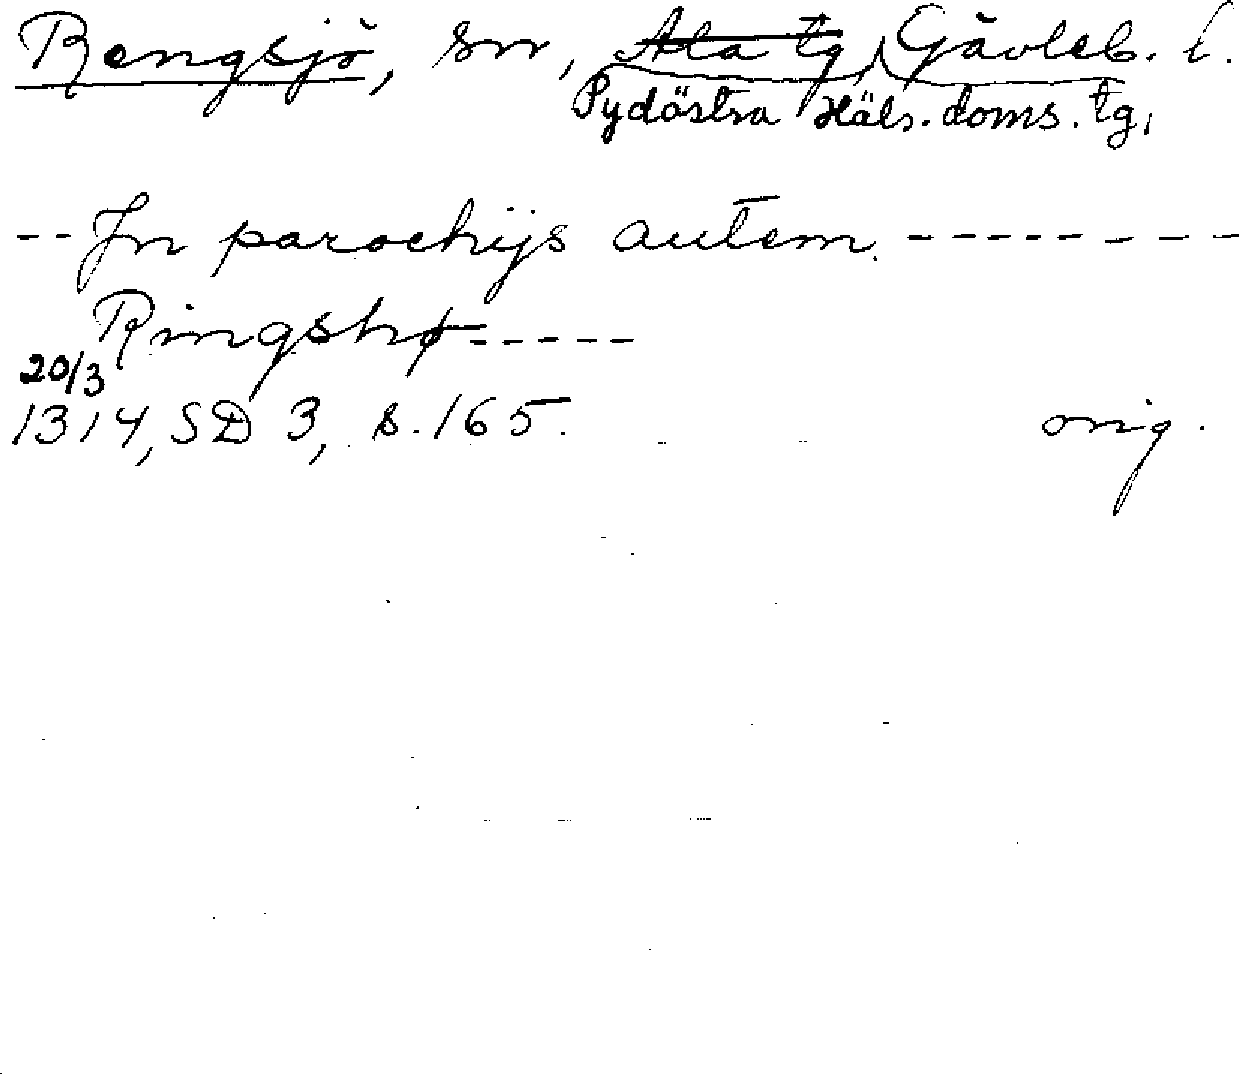 Rengsjö, sn, Ala tg, Gävleb. l.
Sydöstra Häls. doms. tg.
-- Jn parochijs autem --------
Ringshø-----
20/3
1314, SD 3, s. 165. orig.